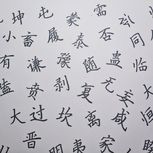 坤 屯 蒙 需 讼
小畜 履 泰 否 同
有 谦 豫 随 蛊 临
嗑 贲 剥 复 无妄
大过 坎 离 咸
晋 明夷 家